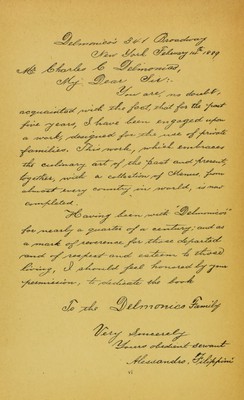 Delmonico's 341 Broadway
New York February 12th 1889
Mr Charles C Delmonico,
My Dear Sir:
You are, no doubt,
acquainted with the fact, that for the past
five years, I have been engaged upon
a work, designed for the use of private
families. This work, which embraces
the culinary art of the past and present,
together, with a collection of Menus, from
almost every country in world, is now
completed.
Having been with "Delmonico's"
for nearly a quarter of a century; and as
a mark of reverence for those departed
and of respect and esteem to those
living, I should feel honored by your
permission, to dedicate the book
To the Delmonico Family
Very Sincerely
Yours obedient servant
Alessandro Filippini